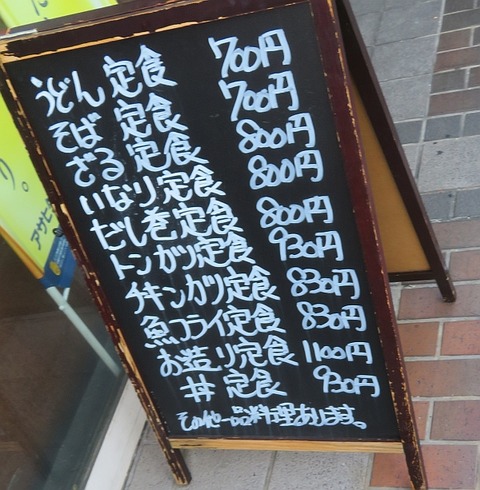 うどん定食 700円
そば 定食 700円
ざる 定食 800円
いなり定食 800円
だし巻定食 800円
トンカツ定食 930円
チキンカツ定食 830円
魚フライ定食 830円
お造り定食 1100円
丼 定食 930円
その他一品料理あります。
り。
アサヒ